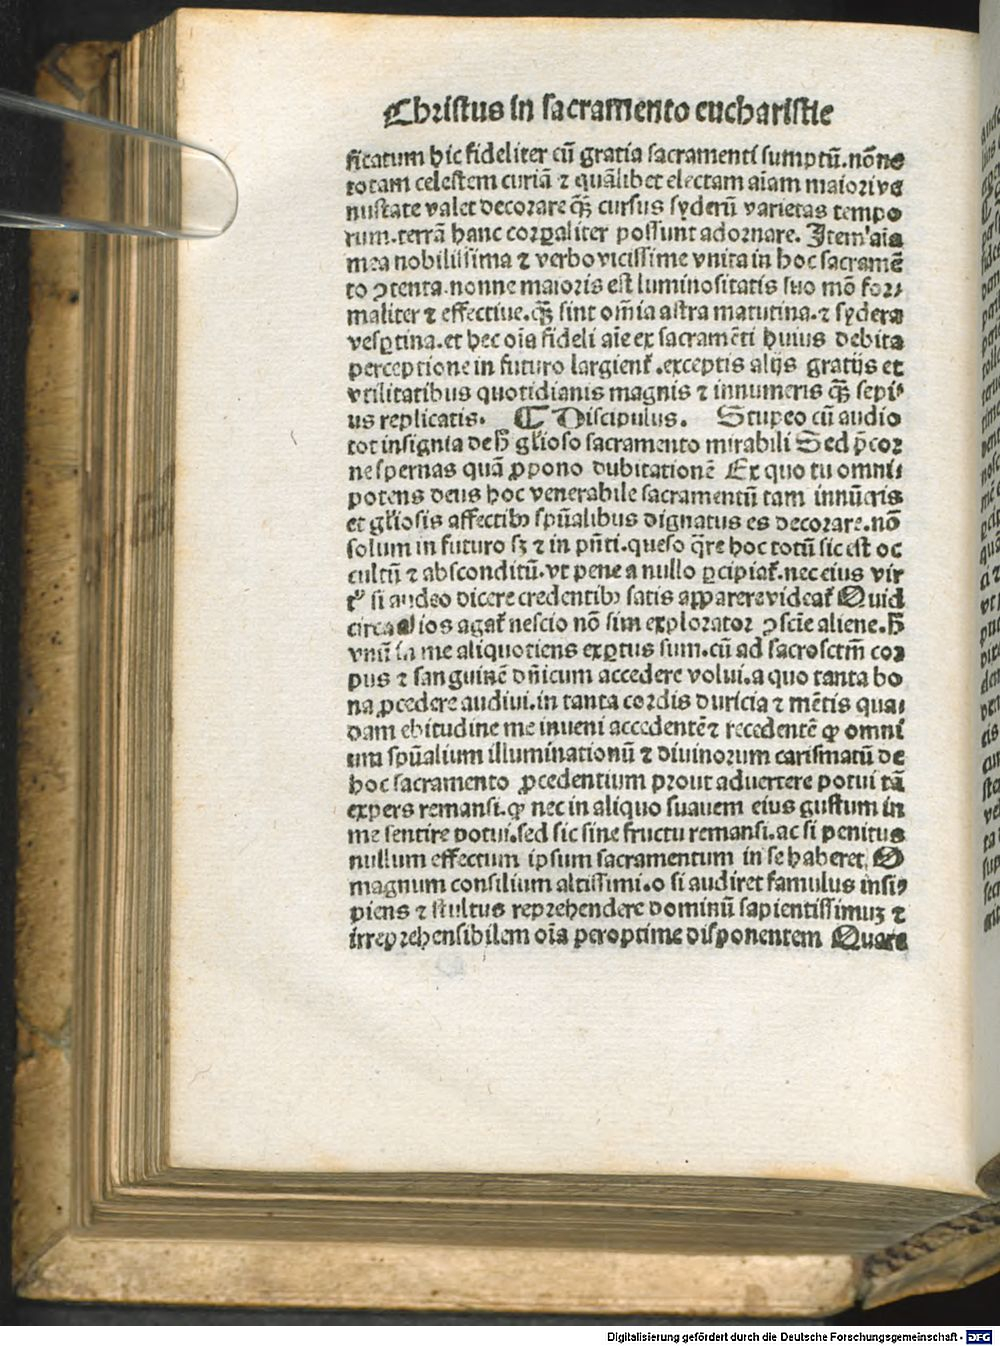 Christus in sacramento eucharistie
ficatum hic fideliter cū gratia sacramenti sumptū. nōne
totam celestem curiā ⁊ quālibet electam aīam maiori ve
nustate valet decorare q̄ꝫ cursus syderū varietas tempo
rum. terrā hanc corꝑaliter possunt adornare. Item aīa
mea nobilissima ⁊ verbo vicissime vnita in hoc sacramē
to ꝯtenta. nonne maioris est luminositatis suo mō for⸗
maliter ⁊ effectiue. q̄ꝫ sint om̄ia astra matutina. ⁊ sydera
vesꝑtina. et hec oīa fideli aīe ex sacramēti huius debita
perceptione in futuro largient᷑. exceptis alijs gratijs et
vtilitatibus quotidianis magnis ⁊ innumeris q̄ꝫ sepi⸗
us replicatis. ¶ Discipulus. Stupeo cū audio
tot insignia de h̄ gl̄ioso sacramento mirabili Sed p̄cor
ne spernas quā ꝓpono dubitationē Ex quo tu omni⸗
potens deus hoc venerabile sacramentū tam innūeris
et gl̄iosis affectibꝫ spūalibus dignatus es decorare. nō
solum in futuro sꝫ ⁊ in pn̄ti. queso q̄re hoc totū sic est oc
cultū ⁊ absconditū. vt pene a nullo ꝑcipiat᷑. nec eius vir
tꝰ si audeo dicere credentibꝫ satis apparere videat᷑ Quid
circa alios agat᷑ nescio nō sim explorator ꝯscīe aliene. h̄
vnū in me aliquotiens exꝑtus sum. cū ad sacrosctm̄ cor
pus ⁊ sanguinē dn̄icum accedere volui. a quo tanta bo
na ꝓcedere audiui. in tanta cordis duricia ⁊ mētis qua⸗
dam ebitudine me inueni accedentē ⁊ recedentē ꝙ omni
um spūalium illuminationū ⁊ diuinorum carismatū de
hoc sacramento ꝓcedentium prout aduertere potui tā
expers remansi. ꝙ nec in aliquo suauem eius gustum in
me sentire potui. sed sic sine fructu remansi. ac si penitus
nullum effectum ipsum sacramentum in se haberet. O
magnum consilium altissimi. o si audiret famulus insi⸗
piens ⁊ stultus reprehendere dominū sapientissimuꝫ ⁊
irreprehensibilem oīa peroptime disponentem Quare
Digitalisierung gefördert durch die Deutsche Forschungsgemeinschaft - DFG